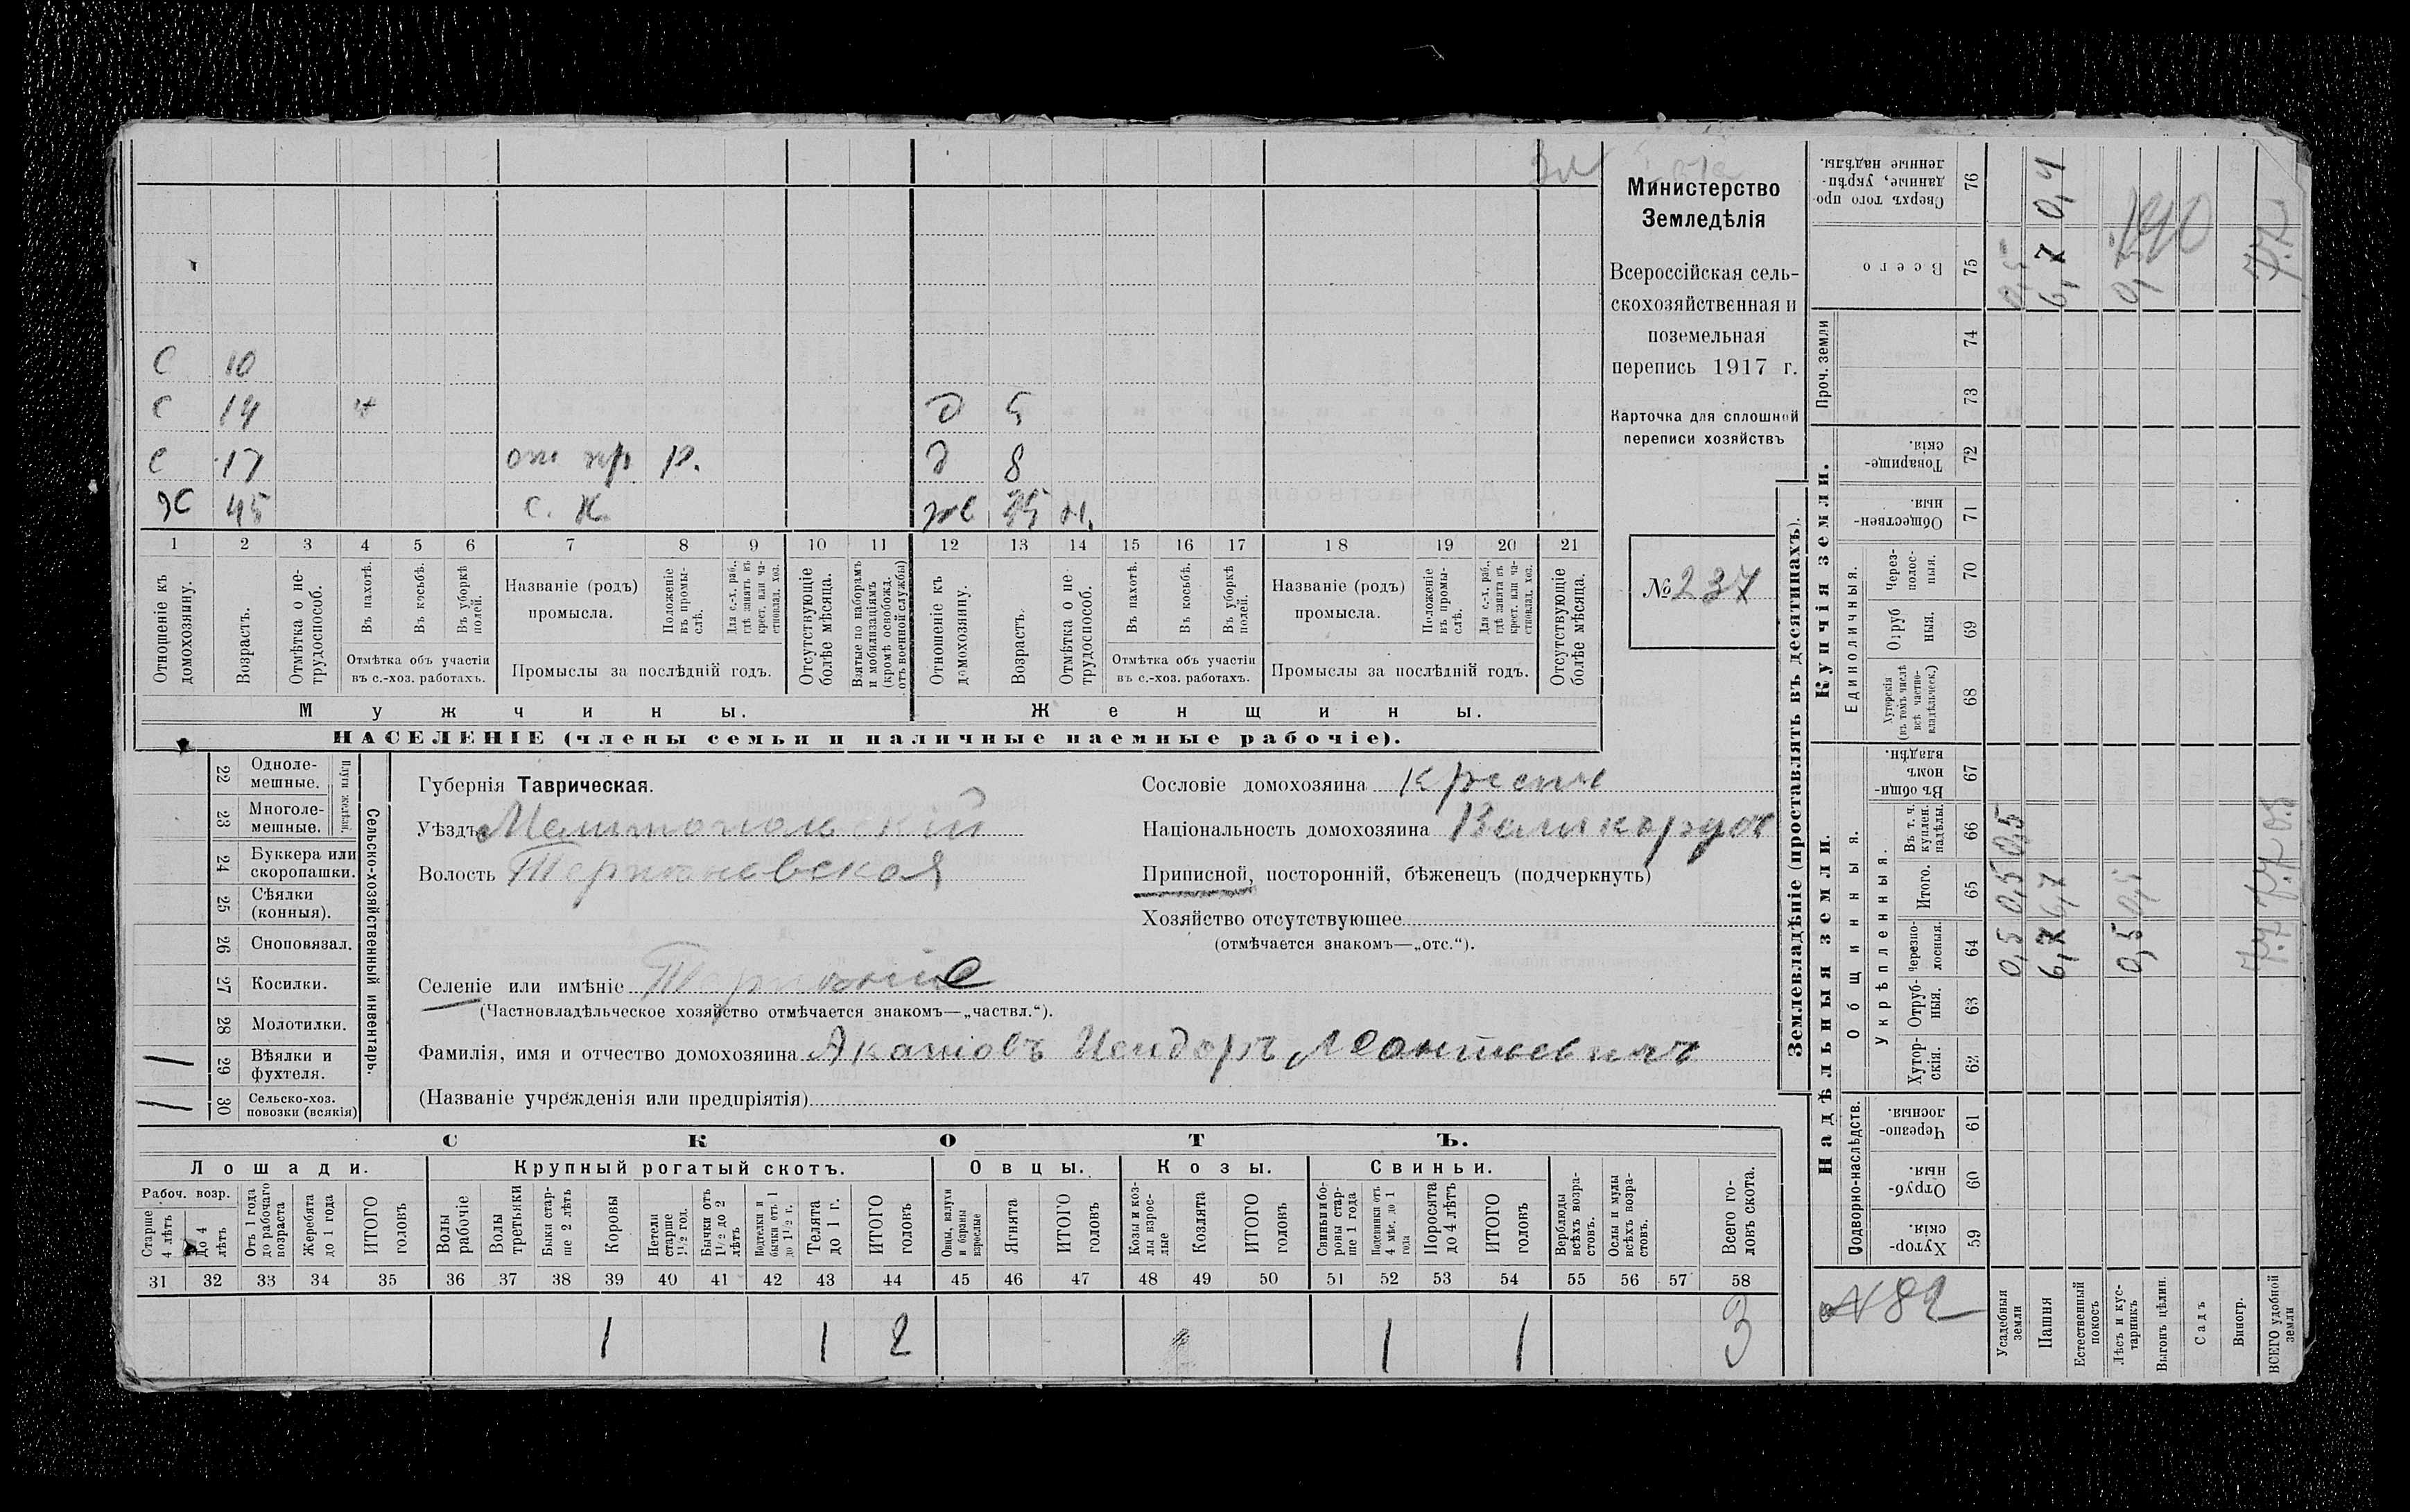 Министерство
Земледѣлія
Всероссійская сель-
скохозяйственная и
поземельная
перепись 1917 г.
Карточка для сплошной
переписи хозяйствъ
№ 237
С 10
С 14 + д 5
С 17 р. д 8
Х 45 С. Х. же 35 н.
1 2 3 4 5 6 7 8 9 10 11 12 13 14 15 16 17 18 19 20 21
Отношеніе къ домохозяину.
Возрастъ.
Отмѣтка о не-трудоспособ.
Въ пахотѣ.
Въ косьбѣ.
Въ уборкѣ полей.
Отмѣтка объ участіи
въ с.-хоз. работахъ.
Названіе (родъ)
промысла.
Положеніе въ промы-слѣ.
Для с.-х. раб., гдѣ занятъ въ крест. или ча-стновлад. хоз.
Промыслы за послѣдній годъ.
Отсутствующіе болѣе мѣсяца.
Взятые по наборамъ и мобилизаціямъ (кромѣ освобожд. отъ военной службы)
Отношеніе къ домохозяину.
Возрастъ.
Отмѣтка о не-трудоспособ.
Въ пахотѣ.
Въ косьбѣ.
Въ уборкѣ полей.
Отмѣтка объ участіи
въ с.-хоз. работахъ.
Названіе (родъ)
промысла.
Положеніе въ промы-слѣ.
Для с.-х. раб., гдѣ занятъ въ крест. или ча-стновлад. хоз.
Промыслы за послѣдній годъ.
Отсутствующіе болѣе мѣсяца.
Мужчины. Женщины.
НАСЕЛЕНІЕ (члены семьи и наличные наемные рабочіе).
Сельско-хозяйственный инвентарь.
Плуги желѣзн.
22 Одноле-мешные.
23 Многоле-мешные.
24 Буккера или скоропашки.
25 Сѣялки (конныя).
26 Сноповязал.
27 Косилки.
28 Молотилки.
29 Вѣялки и фухтеля. 1
30 Сельско-хоз. повозки (всякія) 1
Губернія Таврическая.
Уѣздъ Мелитопольскій
Волость Терпѣневская
Селеніе или имѣніе Терпѣніе
(Частновладѣльческое хозяйство отмѣчается знакомъ—„частвл.“).
Фамилія, имя и отчество домохозяина
(Названіе учрежденія или предпріятія)
Сословіе домохозяина крестн
Національность домохозяина Великорусс
Приписной, посторонній, бѣженецъ (подчеркнуть)
Хозяйство отсутствующее
(отмѣчается знакомъ—„отс.“).
СКОТЪ.
Лошади. Крупный рогатый скотъ. Овцы. Козы. Свиньи.
Рабоч. возр.
Старше 4 лѣтъ
До 4 лѣтъ
Отъ 1 года до рабочаго возраста
Жеребята до 1 года
ИТОГО головъ
Волы рабочіе
Волы третьяки
Быки стар-ше 2 лѣтъ
Коровы
Нетели старше 1½ год.
Бычки отъ 1½ до 2 лѣтъ
Подтелки и бычки отъ 1 до 1½ г.
Телята до 1 г.
ИТОГО головъ
Овцы, валухи и бараны взрослые
Ягнята
ИТОГО головъ
Козы и коз-лы взрос-лые
Козлята
ИТОГО головъ
Свиньи и бо-ровы стар-ше 1 года
Подсвинки отъ 4 мѣс. до 1 года
Поросята до 4 лѣтъ
ИТОГО головъ
Верблюды всѣхъ возра-стовъ.
Ослы и мулы всѣхъ возра-стовъ.
Всего го-ловъ скота.
31 32 33 34 35 36 37 38 39 40 41 42 43 44 45 46 47 48 49 50 51 52 53 54 55 56 57 58
1 1 2 1 1 3
Землевладѣніе (проставлять въ десятинахъ).
Надѣльныя земли.
Купчія земли.
Проч. земли
Подворно-наслѣдств.
Общинныя.
Укрѣпленныя.
Единоличныя.
Хутор-скія. 59
Отруб-ныя. 60
Черезпо-лосныя. 61
Хутор-скія. 62
Отруб-ныя. 63
Черезпо-лосныя. 64
Итого. 65
Въ т. ч. куплен. надѣлы. 66
Въ общи-номъ владѣн. 67
Хуторскія (въ томъ числѣ всѣ частно-владѣльческ.) 68
Отруб ныя. 69
Через-полос-ныя. 70
Обществен-ныя. 71
Товарище-скія. 72
73
74
Всего 75
Сверхъ того про-данные, укрѣп-ленные надѣлы. 76
№ 82
Усадебныя земли 0,5 0,5 0,5 0,5
Пашня 6,7 6,7 6,7 0,4
Естественный покосъ
Лѣсъ и кус-тарникъ 0,5 0,5
Выгонъ цѣлин.
Садъ
Виногр.
ВСЕГО удобной земли 7.7 7.7 0.5 7.7
190